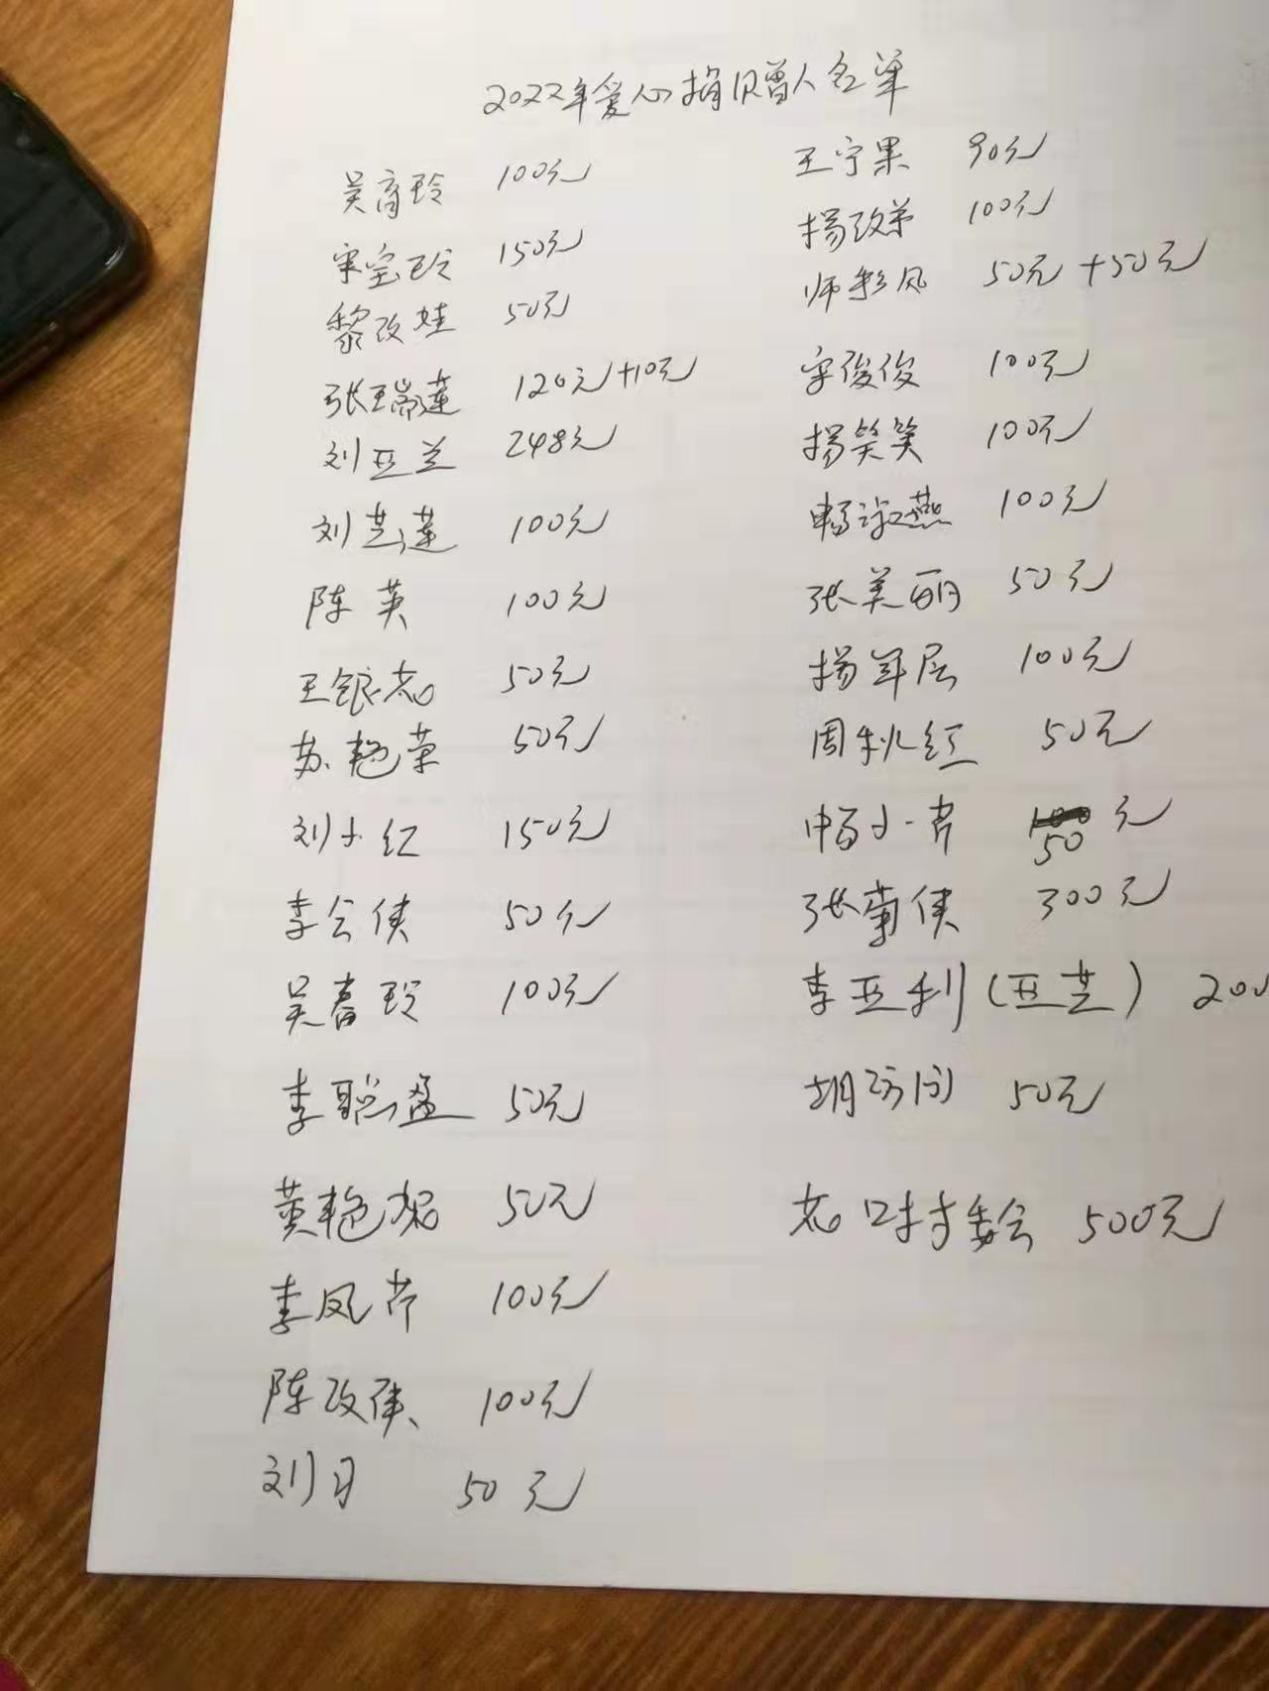 2022年爱心捐赠人名单
吴育玲 100元
宋宝玲 150元
黎改娃 50元
张瑞莲 120元+10元
刘亚兰 248元
刘芝莲 100元
陈英 100元
王银 50元
苏艳荣 50元
刘小红 150元
李会侠 50元
吴春玲 100元
李聪盈 50元
黄艳 50元
李凤芹 100元
陈改侠 100元
刘月 50元
王宁果 90元
杨改弟 100元
师彩凤 50元+50元
宋俊俊 100元
杨笑笑 100元
畅淑燕 100元
张美丽 50元
杨军层 100元
周秋红 50元
畅小芹 50元
张菊侠 300元
李亚利(亚芝) 200
胡 50元
村委会 500元